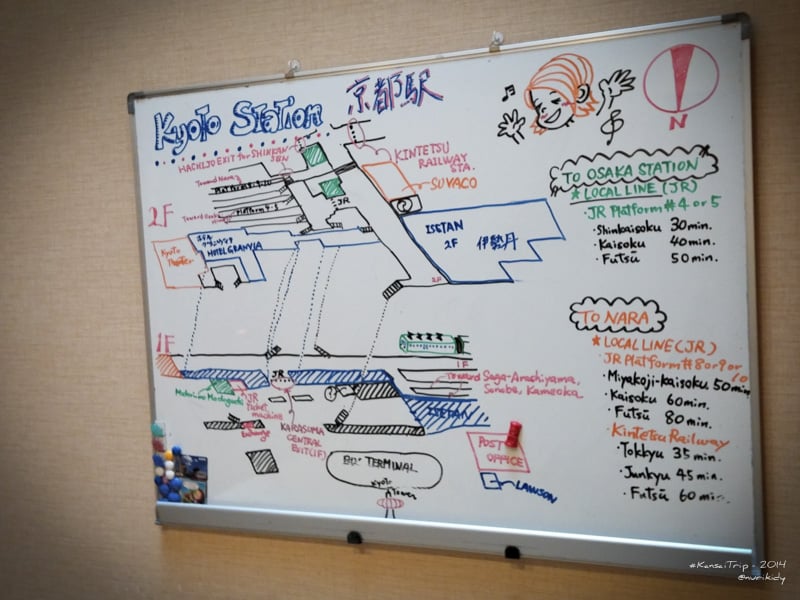 Kyoto Station 京都駅
N
HACHIJO EXIT for SHINKAN
SEN
KINTETSU
RAILWAY
STA.
SUVACO
Toward Nara
Platform 8, 9, 10
Platform 4, 5
JR
2F
ISETAN
2F 伊勢丹
HOTEL GRANVIA
Kyoto
Theater
2F
TO OSAKA STATION
★LOCAL LINE (JR)
・JR Platform #4 or 5
・Shinkaisoku 30min.
・Kaisoku 40min.
・Futsū 50min.
1F
JR
1F
Toward Saga-Arashiyama,
Sonobe, Kameoka
ISETAN
JR
Ticket
machine
KARASUMA
CENTRAL
EXIT(1F)
POST
OFFICE
LAWSON
TERMINAL
Kyoto
Tower
TO NARA
★LOCAL LINE (JR)
・JR Platform #8 or 9 or
10
・Miyakoji-kaisoku 50min
・Kaisoku 60min.
・Futsū 80min.
・Kintetsu Railway
・Tokkyu 35min.
・Junkyu 45min.
・Futsū 60min.
#KansaiTrip - 2014
@nurikidy